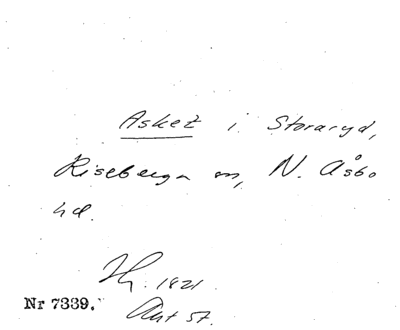 Asket i Storaryd,
Riseberga sn, N. Åsbo
hd.
1821
Nr 7339. Akt 57.